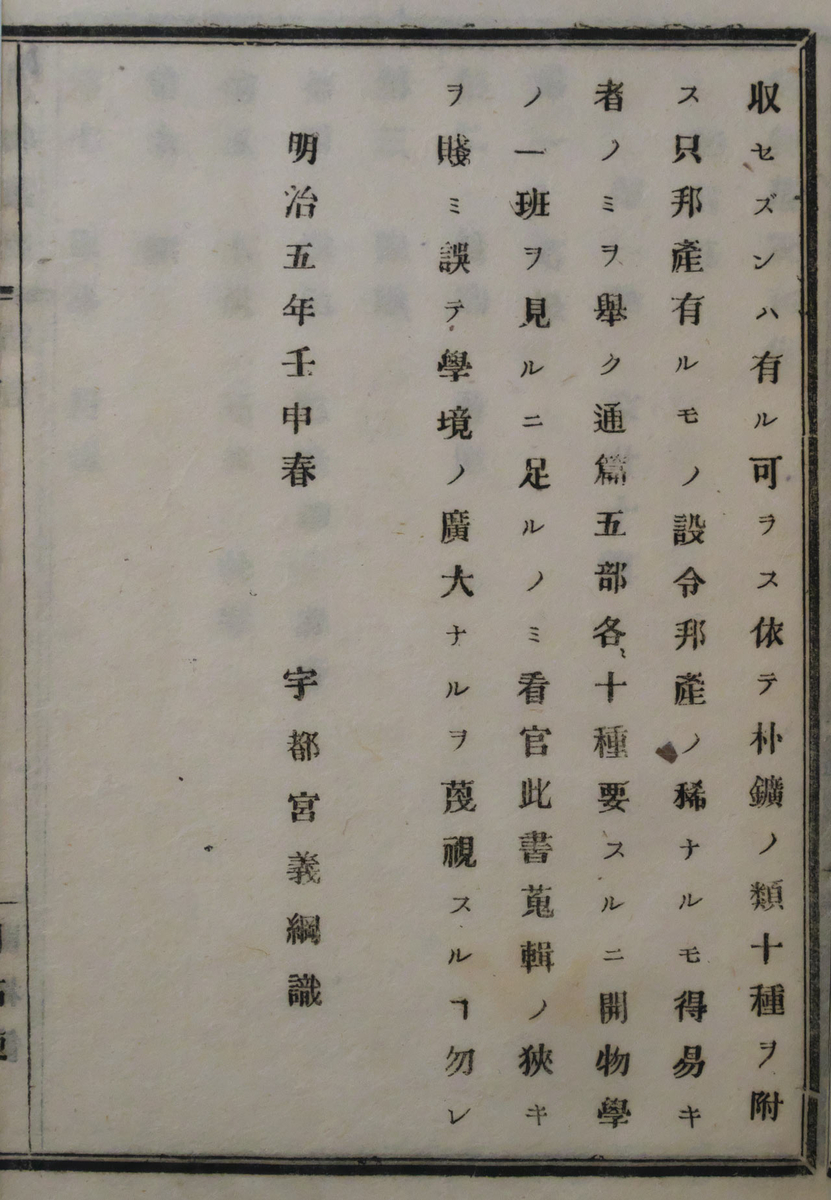 収セズンハ有ル可ラス依テ朴鑛ノ類十種ヲ附
ス只邦產有ルモノ設令邦產ノ稀ナルモ得易キ
者ノミヲ舉ク通篇五部各〻十種要スルニ開物學
ノ一班ヲ見ルニ足ルノミ看官此書蒐輯ノ狹キ
ヲ賤ミ誤テ學境ノ廣大ナルヲ蔑視スルヿ勿レ
明治五年壬申春 宇都宮義綱識